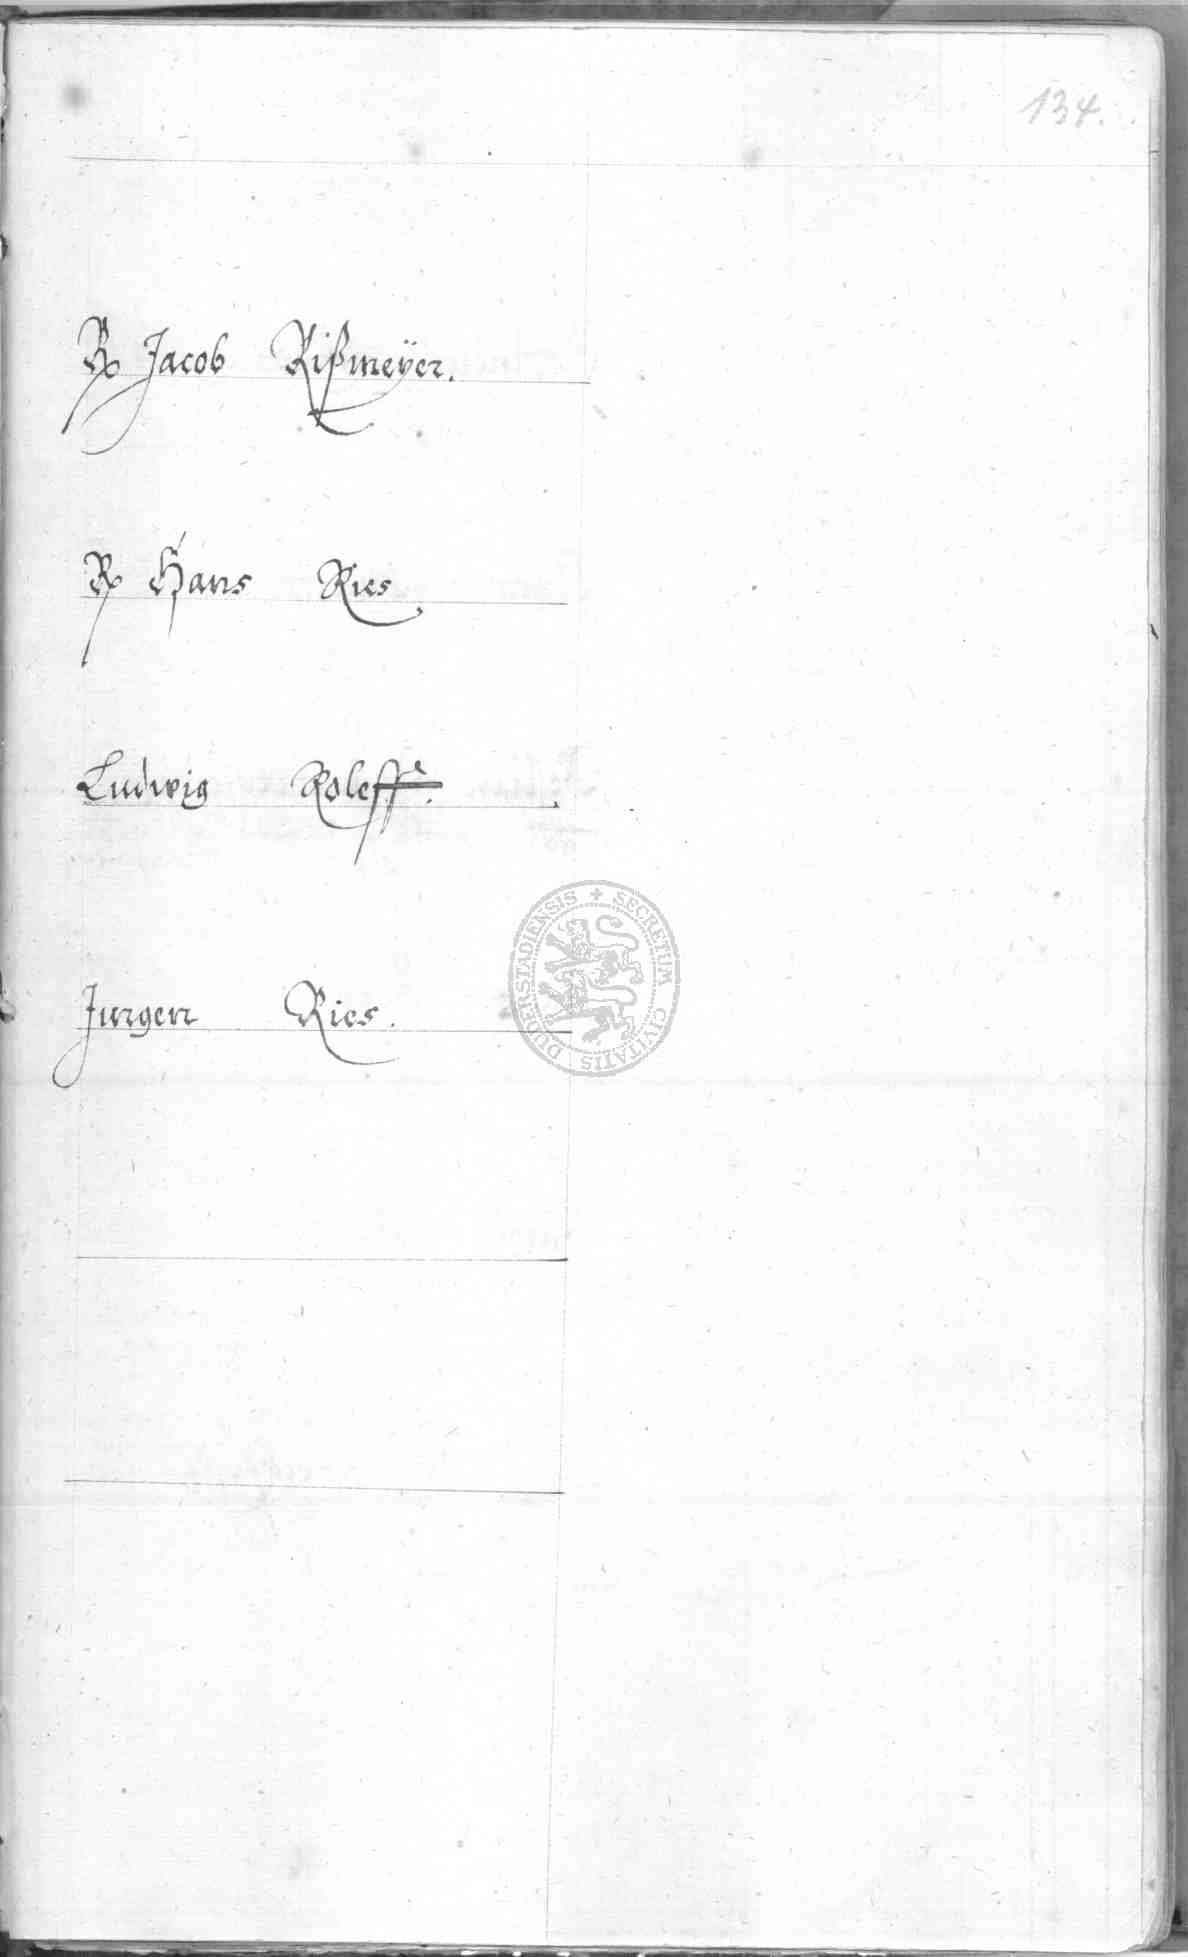 134.
R Jacob Rißmeÿer.
R Hans Ries
Ludwig Roleff.
Jurgen Ries.
SECRETUM CIVITATIS DUDERSTADIENSIS